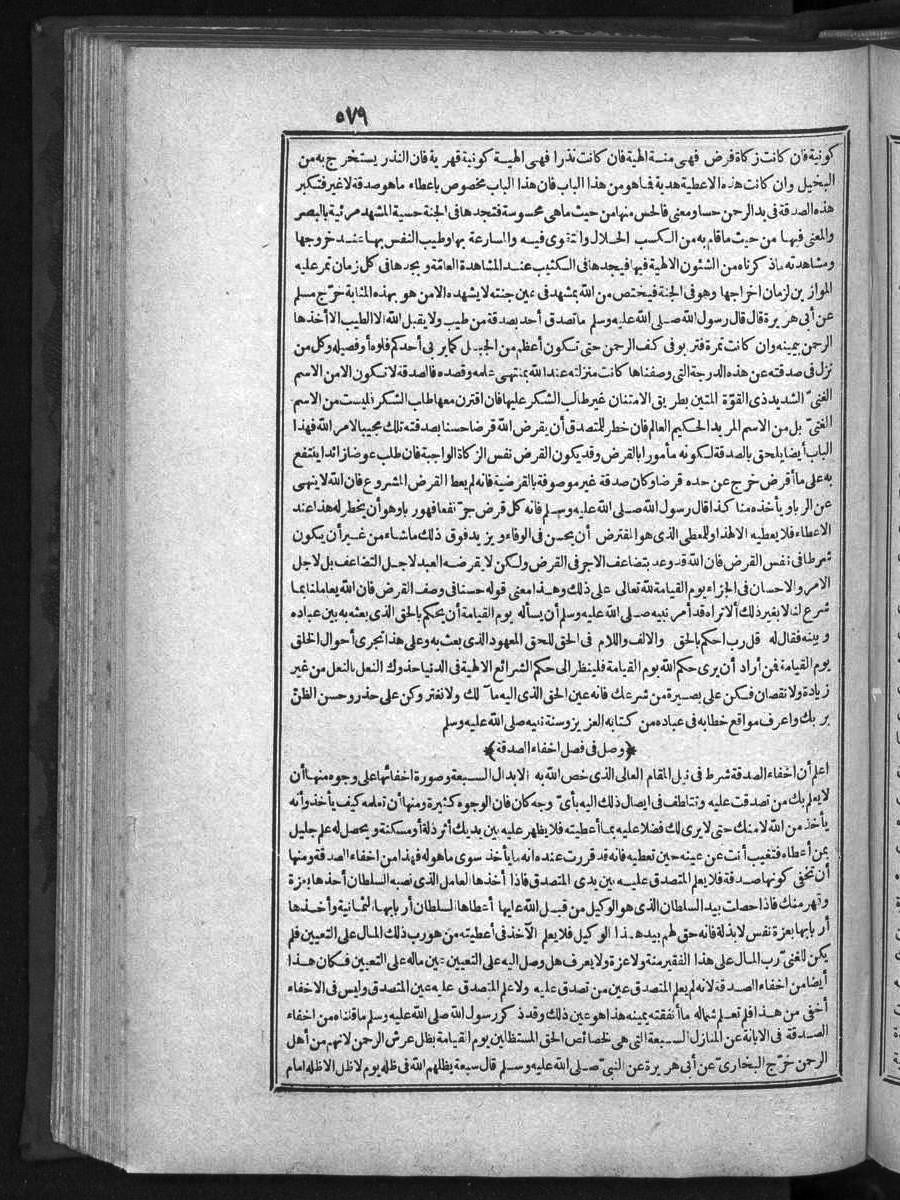 ٥٧٩
كونية فان كانت زكاة فرض فهى منة الهية فان كانت نذرا فهى الهية كونية قهرية فان النذر يستخرج به من
البخيل وان كانت هذه الاعطية هدية فما هو من هذا الباب فان هذا الباب مخصوص باعطاء ما هو صدقة لا غير فتكبر
هذه الصدقة فى يد الرحمن حسا ومعنى فالحس منها من حيث ما هى محسوسة فتجدها فى الجنة حسية المشهد مرئية بالبصر
والمعنى فيها من حيث ما قام به من الكسب الحلال والتقوى فيه والمسارعة بها وطيب النفس بها عند خروجها
ومشاهدته ماذكرناه من الشئون الالهية فيها فيجدها فى الكثيب عند المشاهدة العامّة ويجدها فى كل زمان تمر عليه
الموازين لزمان اخراجها وهو فى الجنة فيختص من الله بمشهد فى عين جنته لا يشهده الا من هو بهذه المثابة خرّج مسلم
عن أبى هريرة قال قال رسول الله صلى الله عليه وسلم ما تصدق أحد بصدقة من طيب ولا يقبل الله الا الطيب الا أخذها
الرحمن بيمينه وان كانت تمرة فتربو فى كف الرحمن حتى تكون أعظم من الجبل كما يربى أحدكم فلوه أو فصيله وكل من
نزل فى صدقته عن هذه الدرجة التى وصفناها كانت منزلته عند الله بمنتهى علمه وقصده فالصدقة لا تكون الا من الاسم
الغنىّ الشديد ذى القوّة المتين بطريق الامتنان غير طالب الشكر عليها فان اقترن معها طلب الشكر فليست من الاسم
الغنىّ بل من الاسم المريد الحكيم العالم فان خطر للمتصدق أن يقرض الله قرضا حسنا بصدقته تلك مجيبا لامر الله فهذا
الباب أيضا يلحق بالصدقة لكونه مأمورا بالقرض وقد يكون القرض نفس الزكاة الواجبة فان طلب عوضا زائدا ينتفع
به على ما أقرض خرج عن حده قرضا وكان صدقة غير موصوفة بالقرضية فانه لم يعط القرض المشروع فان الله لا ينهى
عن الربا ويأخذه منا كذا قال رسول الله صلى الله عليه وسلم فانه كل قرض جرّ نفعا فهو ربا وهو أن يخطر له هذا عند
الاعطاء فلا يعطيه الا لهذا وللمعطى الذى هو المقترض أن يحسن فى الوفاء ويزيد فوق ذلك ما شاء من غير أن يكون
شرطا فى نفس القرض فان الله قد وعد بتضاعف الاجر فى القرض ولكن لا يقرضه العبد لاجل التضاعف بل لاجل
الامر والاحسان فى الجزاء يوم القيامة لله تعالى على ذلك وهذا معنى قوله حسنا فى وصف القرض فان الله يعاملنا بما
شرع لنا لا بغير ذلك ألا تراه قد أمر نبيه صلى الله عليه وسلم أن يسأله يوم القيامة أن يحكم بالحق الذى بعثه به بين عباده
وبينه فقال له قل رب احكم بالحق والالف واللام فى الحق للحق المعهود الذى بعث به وعلى هذا تجرى أحوال الخلق
يوم القيامة فمن أراد أن يرى حكم الله يوم القيامة فلينظر الى حكم الشرائع الالهية فى الدنيا حذوك النعل بالنعل من غير
زيادة ولا نقصان فكن على بصيرة من شرعك فانه عين الحق الذى اليه مآ لك ولا تغتر وكن على حذر وحسن الظنّ
بربك واعرف مواقع خطابه فى عباده من كتابه العزيز وسنة نبيه صلى الله عليه وسلم
﴿وصل فى فصل اخفاء الصدقة﴾
اعلم أن اخفاء الصدقة شرط فى نيل المقام العالى الذى خص الله به الابدال السبعة وصورة اخفائها على وجوه منها أن
لا يعلم بك من تصدقت عليه وتتلطف فى ايصال ذلك اليه بأىّ وجه كان فان الوجوه كثيرة ومنها أن تعلمه كيف يأخذ وأنه
يأخذ من الله لا منك حتى لا يرى لك فضلا عليه بما أعطيته فلا يظهر عليه بين يديك أثر ذلة أو مسكنة ويحصل له علم جليل
بمن أعطاه فتغيب أنت عن عينه حين تعطيه فانه قد قررت عنده انه ما يأخذ سوى ما هو له فهذا من اخفاء الصدقة ومنها
أن تخفى كونها صدقة فلا يعلم المتصدق عليه بين يدى المتصدق فاذا أخذها العامل الذى نصبه السلطان أخذها بعزة
وقهر منك فاذا حصلت بيد السلطان الذى هو الوكيل من قبل الله عليها أعطاها السلطان أربابها الثمانية وأخذها
أربابها بعزة نفس لا بذلة فانه حق لهم بيد هذا الوكيل فلا يعلم الآخذ فى أعطيته من هو رب ذلك المال على التعيين فلم
يكن للغنىّ رب المال على هذا الفقير منة ولا عزة ولا يعرف هل وصل اليه على التعيين عين ماله على التعيين فكان هذا
أيضا من اخفاء الصدقة لانه لم يعلم المتصدق عين من تصدق عليه ولا علم المتصدق عليه عين المتصدق وليس فى الاخفاء
أخفى من هذا فلم تعلم شماله ما أنفقته يمينه هذا هو عين ذلك وقد ذكر رسول الله صلى الله عليه وسلم ما قلناه من اخفاء
الصدقة فى الابانة عن المنازل السبعة التى هى لخصائص الحق المستظلين يوم القيامة بظل عرش الرحمن لانهم من أهل
الرحمن خرّج البخارىّ عن أبى هريرة عن النبىّ صلى الله عليه وسلم قال سبعة يظلهم الله فى ظله يوم لا ظل الا ظله امام